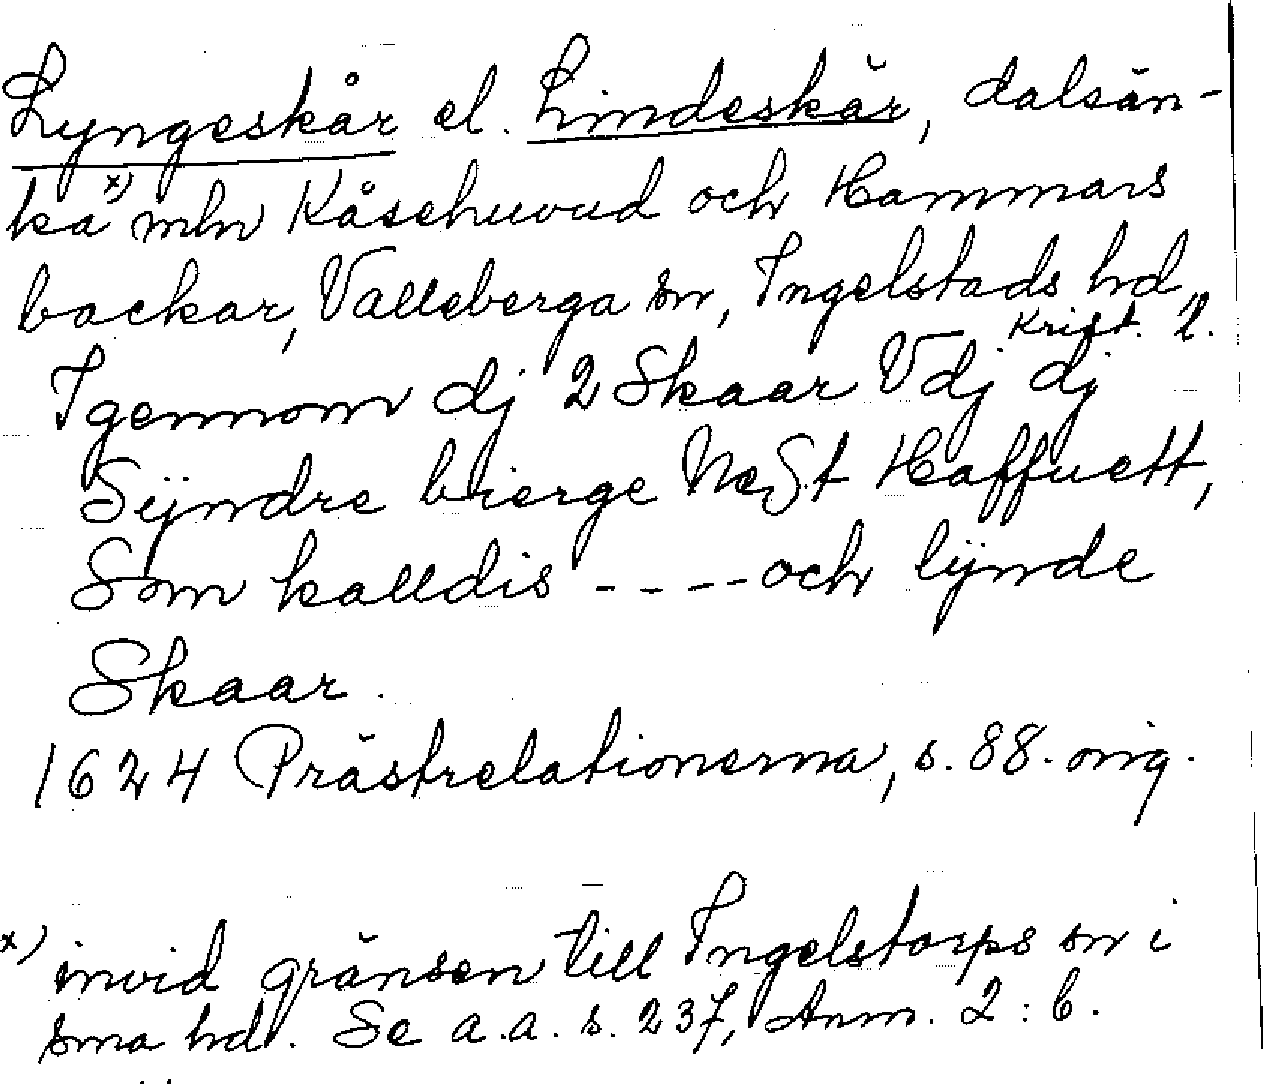 Lyngeskår el. Lindeskär, dalsän-
ka x) mln Kåsehuvud och Hammars
backar, Valleberga sn, Ingelstads hd,
Krist. l.
Igennom dj 2 Skaar Vdj dj
Sÿndre bierge NeSt Haffuett,
Som kalldis - - - - och lÿnde
Skaar.
1624 Prästrelationerna, s. 88. orig.
x) invid gränsen till Ingelstorps sn i
sma hd. Se a.a. s. 237, Anm. 2:b.